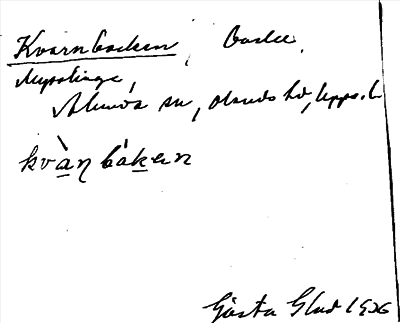 Kvarnbacken, backe,
Mysslinge,
Almunge sn, Olands hd, Upps. l.
kvàṇbáken
Gösta Glad 1926